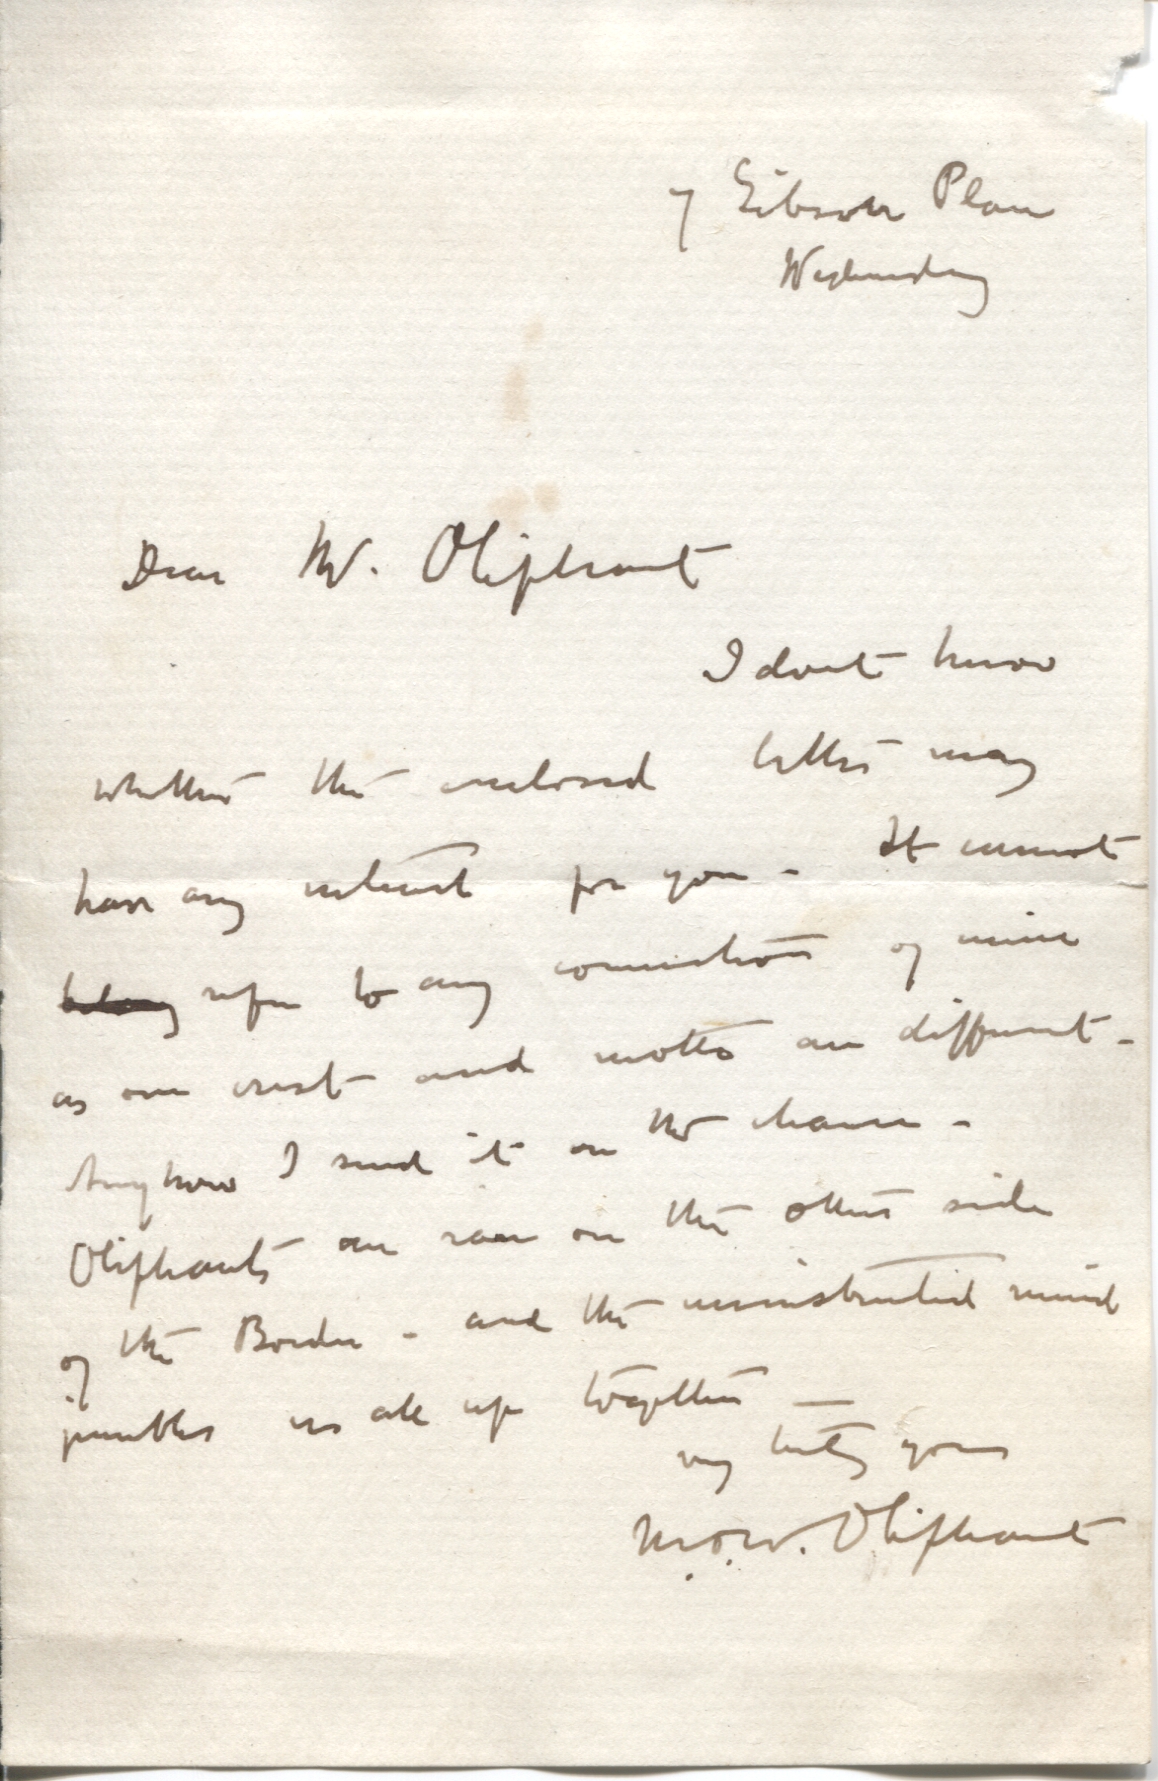 7 Gibson Place
Wednesday
Dear Mr. Oliphant
I dont know
whether the enclosed letter may
have any interest for you - It cannot
belong refer to any connection of mine
as our crest and motto are different -
Anyhow I send it on the chance -
Oliphants are rare on the other side
of the Border - and the uninstructed mind
jumbles us all up together —
very truly yours
M.O.W. Oliphant